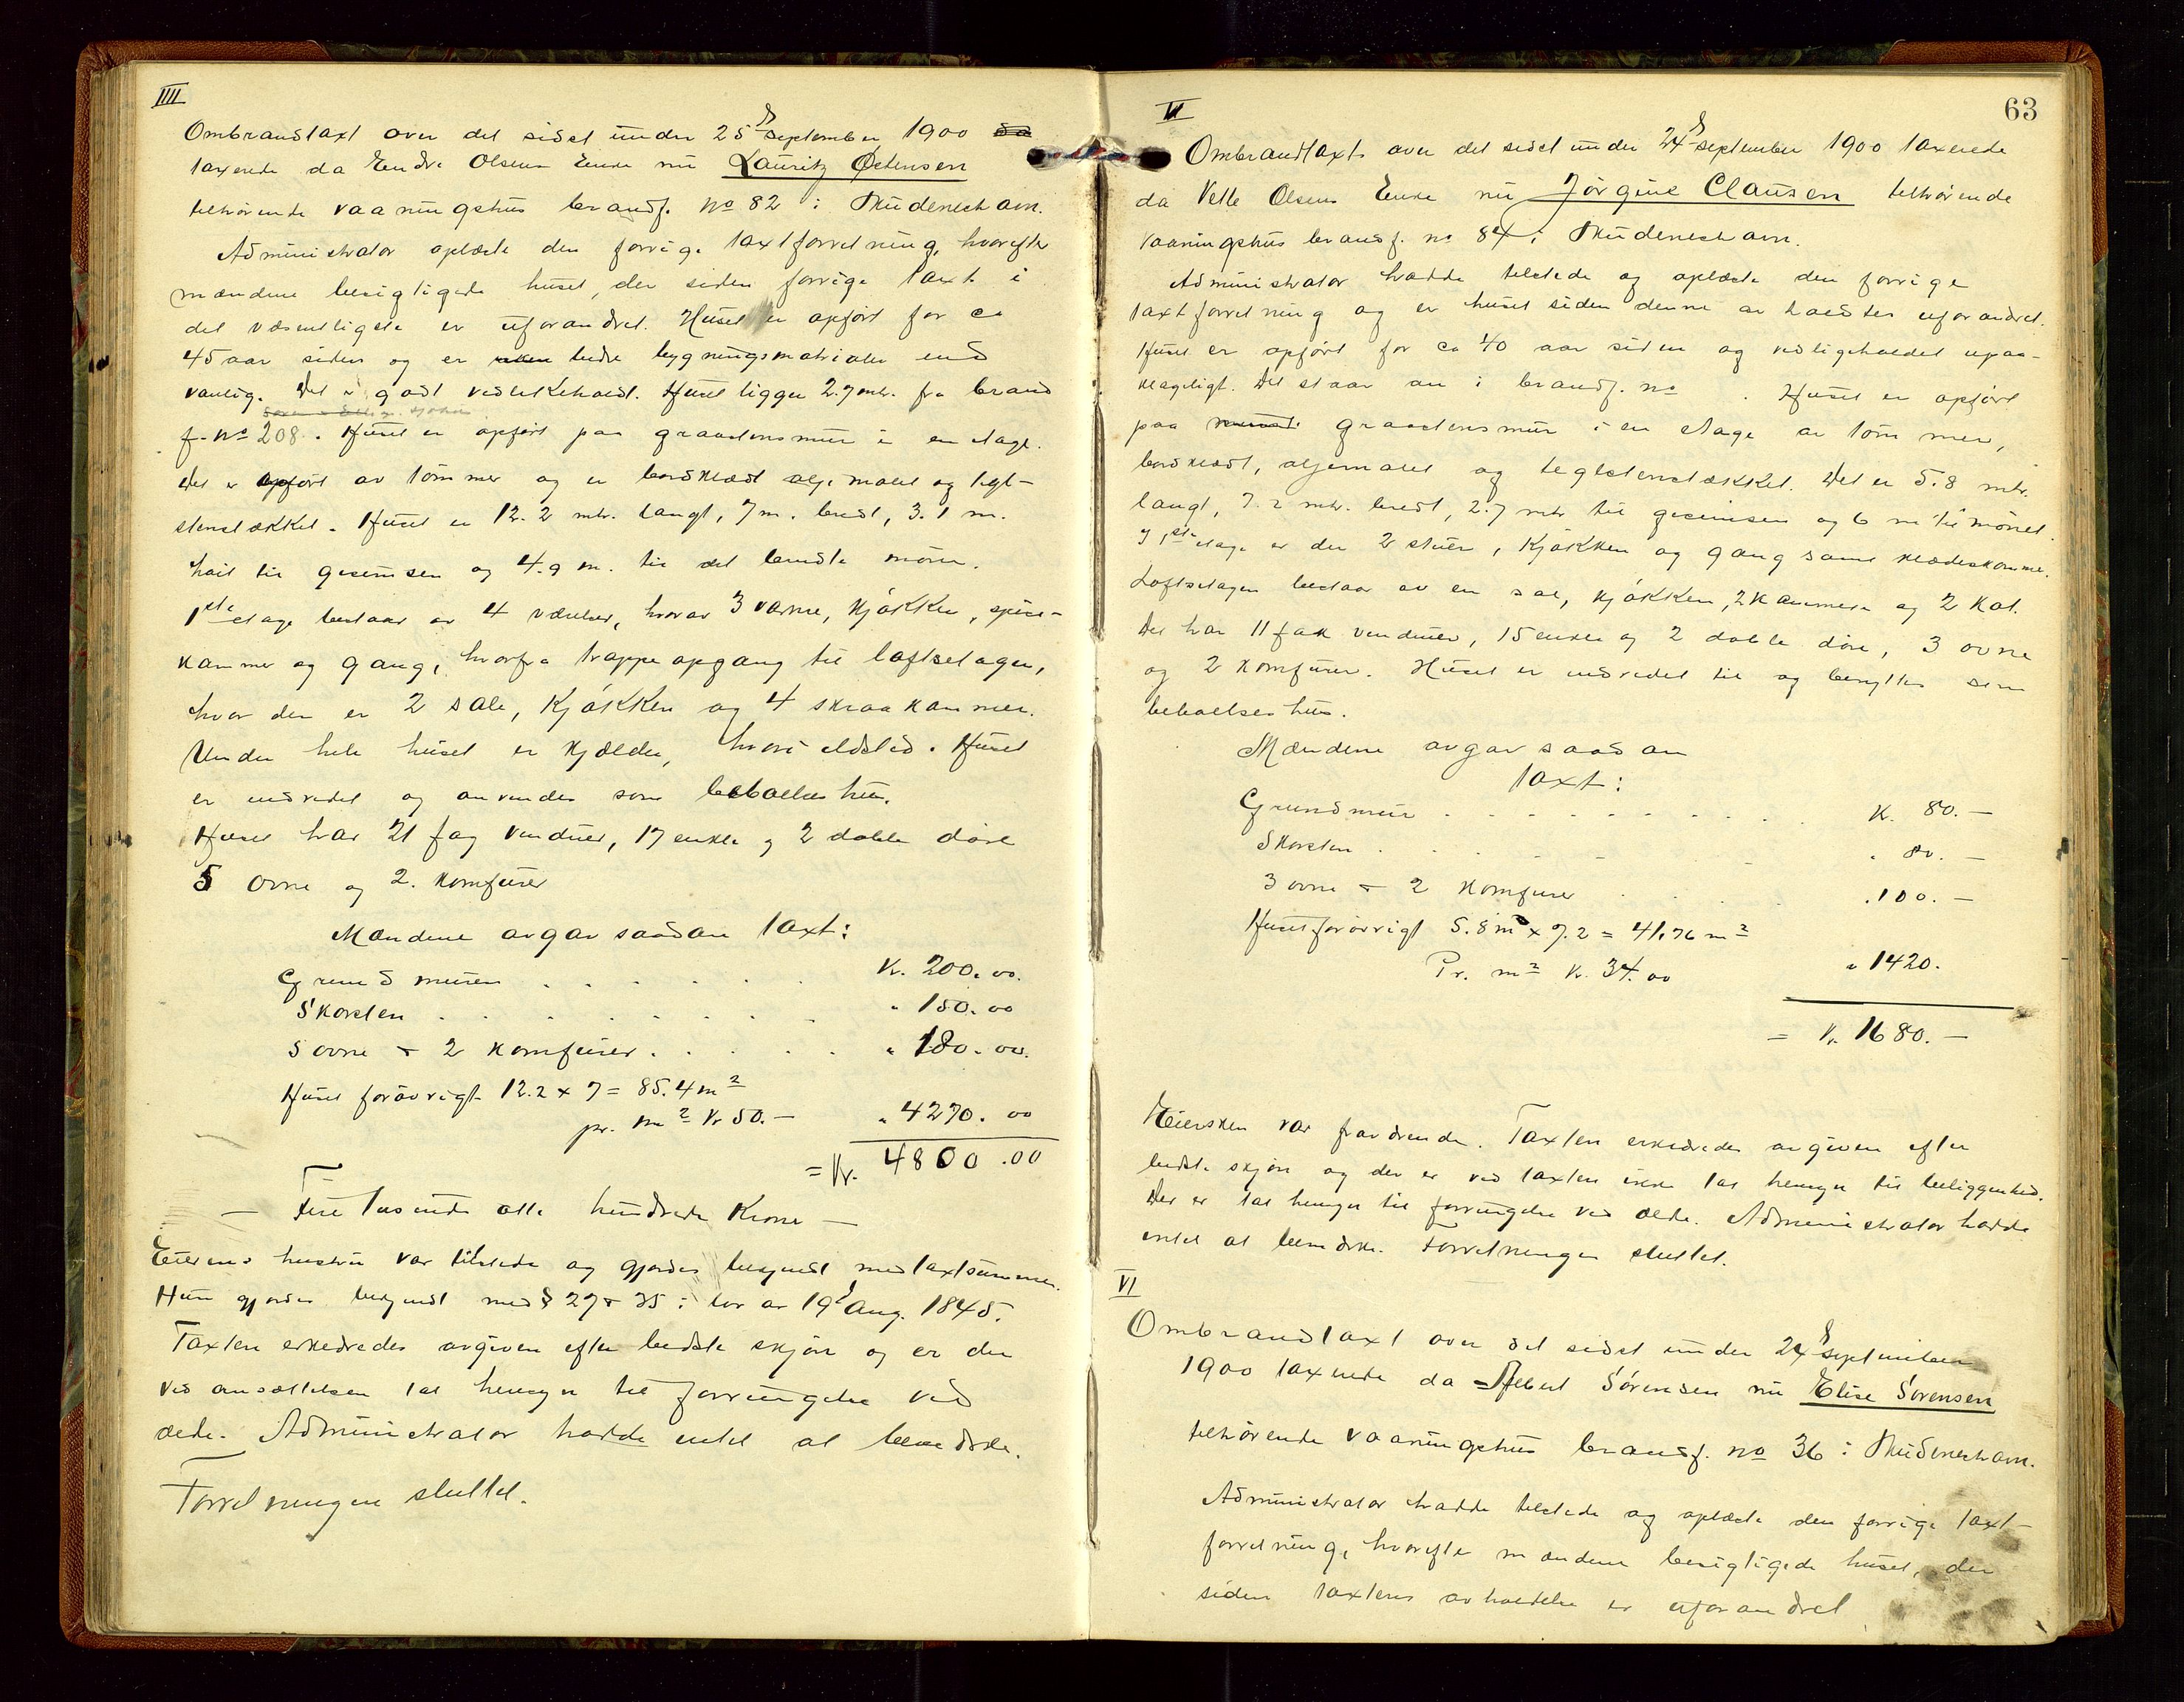 IIII
Ombrandtaxt over det sidst under 25d september 1900 da
taxerede da Endre Olsens Enke nu Lauritz Østensen
tilhørende vaaningshus brandf. no 82 i Skudeneshavn.
Administrator oplæste den forrige taxtforretning, hvorefter
mændene besigtigede huset, der siden forrige taxt i
det væsentligste er uforandret. Huset er opført for ca
45 aar siden og er bedre bygningsmatrialer end
vanlig. Det er godt vedlikeholdt. Huset ligger 2.7 mtr. fra brand
f. no 208. Huset er opført paa graastensmur i en etage.
Det er opført av tømmer og er bordklædt oljemalet og tegl-
stenstækket. Huset er 12.2 mtr. langt, 7 m. bredt, 3.1 m.
høit til gesimsen og 4.9 m. til det bendte møne.
1ste etage bestaar av 4 værelser, hvorav 3 varme, kjøkken, spise-
kammer og gang, hvorfra trappeopgang til loftsetagen,
hvor der er 2 sale, kjøkken og 4 skraakammer.
Under hele huset er kjælder, hvori ildsted. Huset
er indredet og anvendes som beboelseshus.
Huset har 21 fag vinduer, 17 enkle og 2 doble døre
5 ovne og 2. komfurer
Mændene avgav saadan taxt:
Grundmuren . . . . . . Kr. 200.00.
Skorsten . . . . . . . " 150.00
5 ovne + 2 komfurer . . . . . " 180.00.
Huset forøvrigt 12.2 x 7 = 85.4 m2
pr. m2 Kr 50.— " 4270.00
= Kr. 4800.00
— Fire tusinde otte hundrede Kroner —
Eierens hustru var tilstede og gjordes bekjendt med taxtsummen.
Hun gjordes bekjendt med § 27 & 35 i lov av 19d Aug. 1845.
Taxten erklæredes avgiven efter bedste skjøn og er der
ved ansættelsen tat hensyn til forringelse ved
ælde. Administrator hadde intet at bemærke.
Forretningen sluttet.
63
V
Ombrandtaxt over det sidst under 24d september 1900 taxerede
da Vette Olsens Enke nu Jørgine Clausen tilhørende
vaaningshus brandf. no 84 i Skudeneshavn.
Administrator hadde tilstede og oplæste den forrige
taxtforretning og er huset siden dennes avholdelse uforandret.
Huset er opført for ca 40 aar siden og vedligeholdet upaa-
klageligt. Det staar an i brandf. no . Huset er opført
paa graastensmur i en etage av tømmer,
bordklædt, oljemalet og teglstenstækket. Det er 5.8 mtr.
langt, 7.2 mtr. bredt, 2.7 mtr til gesimsen og 6 m til mønet.
I 1ste etage er der 2 stuer, kjøkken og gang samt klædeskammer.
Loftsetagen bestaar av en sal, kjøkken, 2 kammere og 2 kot.
Det har 11 fak vinduer, 15 enkle og 2 doble døre, 3 ovne
og 2 komfurer. Huset er indredet til og benyttes som
beboelseshus.
Mændene avgav saadan
taxt:
Grundmur . . . . . . . . . . K. 80.—
Skorsten . . . . . . " 80.—
3 ovne + 2 komfurer . . . . " 100.—
Huset forøvrigt 5.8 m x 7.2 = 41,76 m2
Pr. m2 Kr. 34.00 " 1420.
= Kr. 1680.—
Eiersken var fraværende. Taxten erklæredes avgiven efter
bedste skjøn og der er ved taxten ikke tat hensyn til beliggenhed.
Der er tat hensyn til forringelse ved ælde. Administrator hadde
intet at bemærke. Forretningen sluttet.
VI
Ombrandtaxt over det sidst under 24d september
1900 taxerede da Albert Sørensen nu Elise Sørensen
tilhørende vaaningshus brandf. no 36 i Skudeneshavn.
Administrator hadde tilstede og oplæste den forrige taxt-
forretning, hvorefter mændene besigtigede huset, der
siden taxtens avholdelse er uforandret